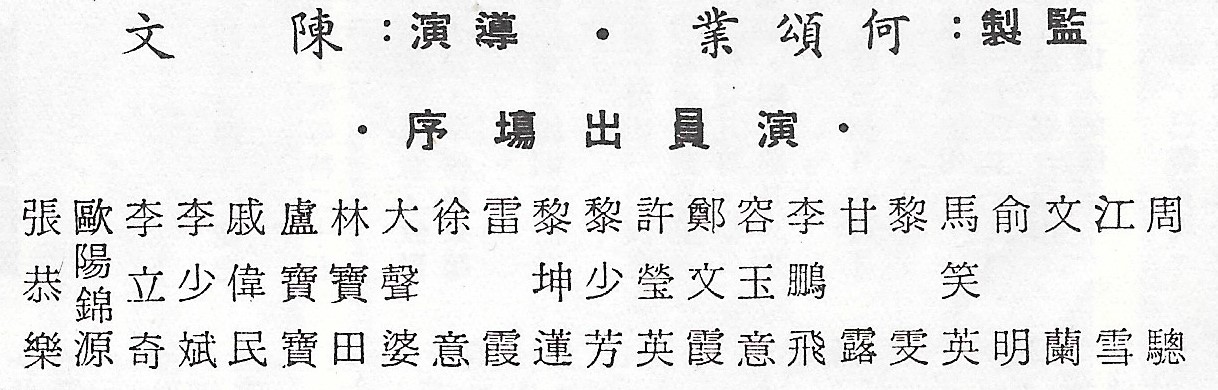 監製：何頌業・導演：陳文
・演員出場序・
周驄
江雪
文蘭
俞明
馬笑英
黎雯
甘露
李鵬飛
容玉意
鄭文霞
許瑩英
黎少芳
黎坤蓮
雷霞
徐意
大聲婆
林寶田
盧寶寶
戚偉民
李少斌
李立奇
歐陽錦源
張恭樂